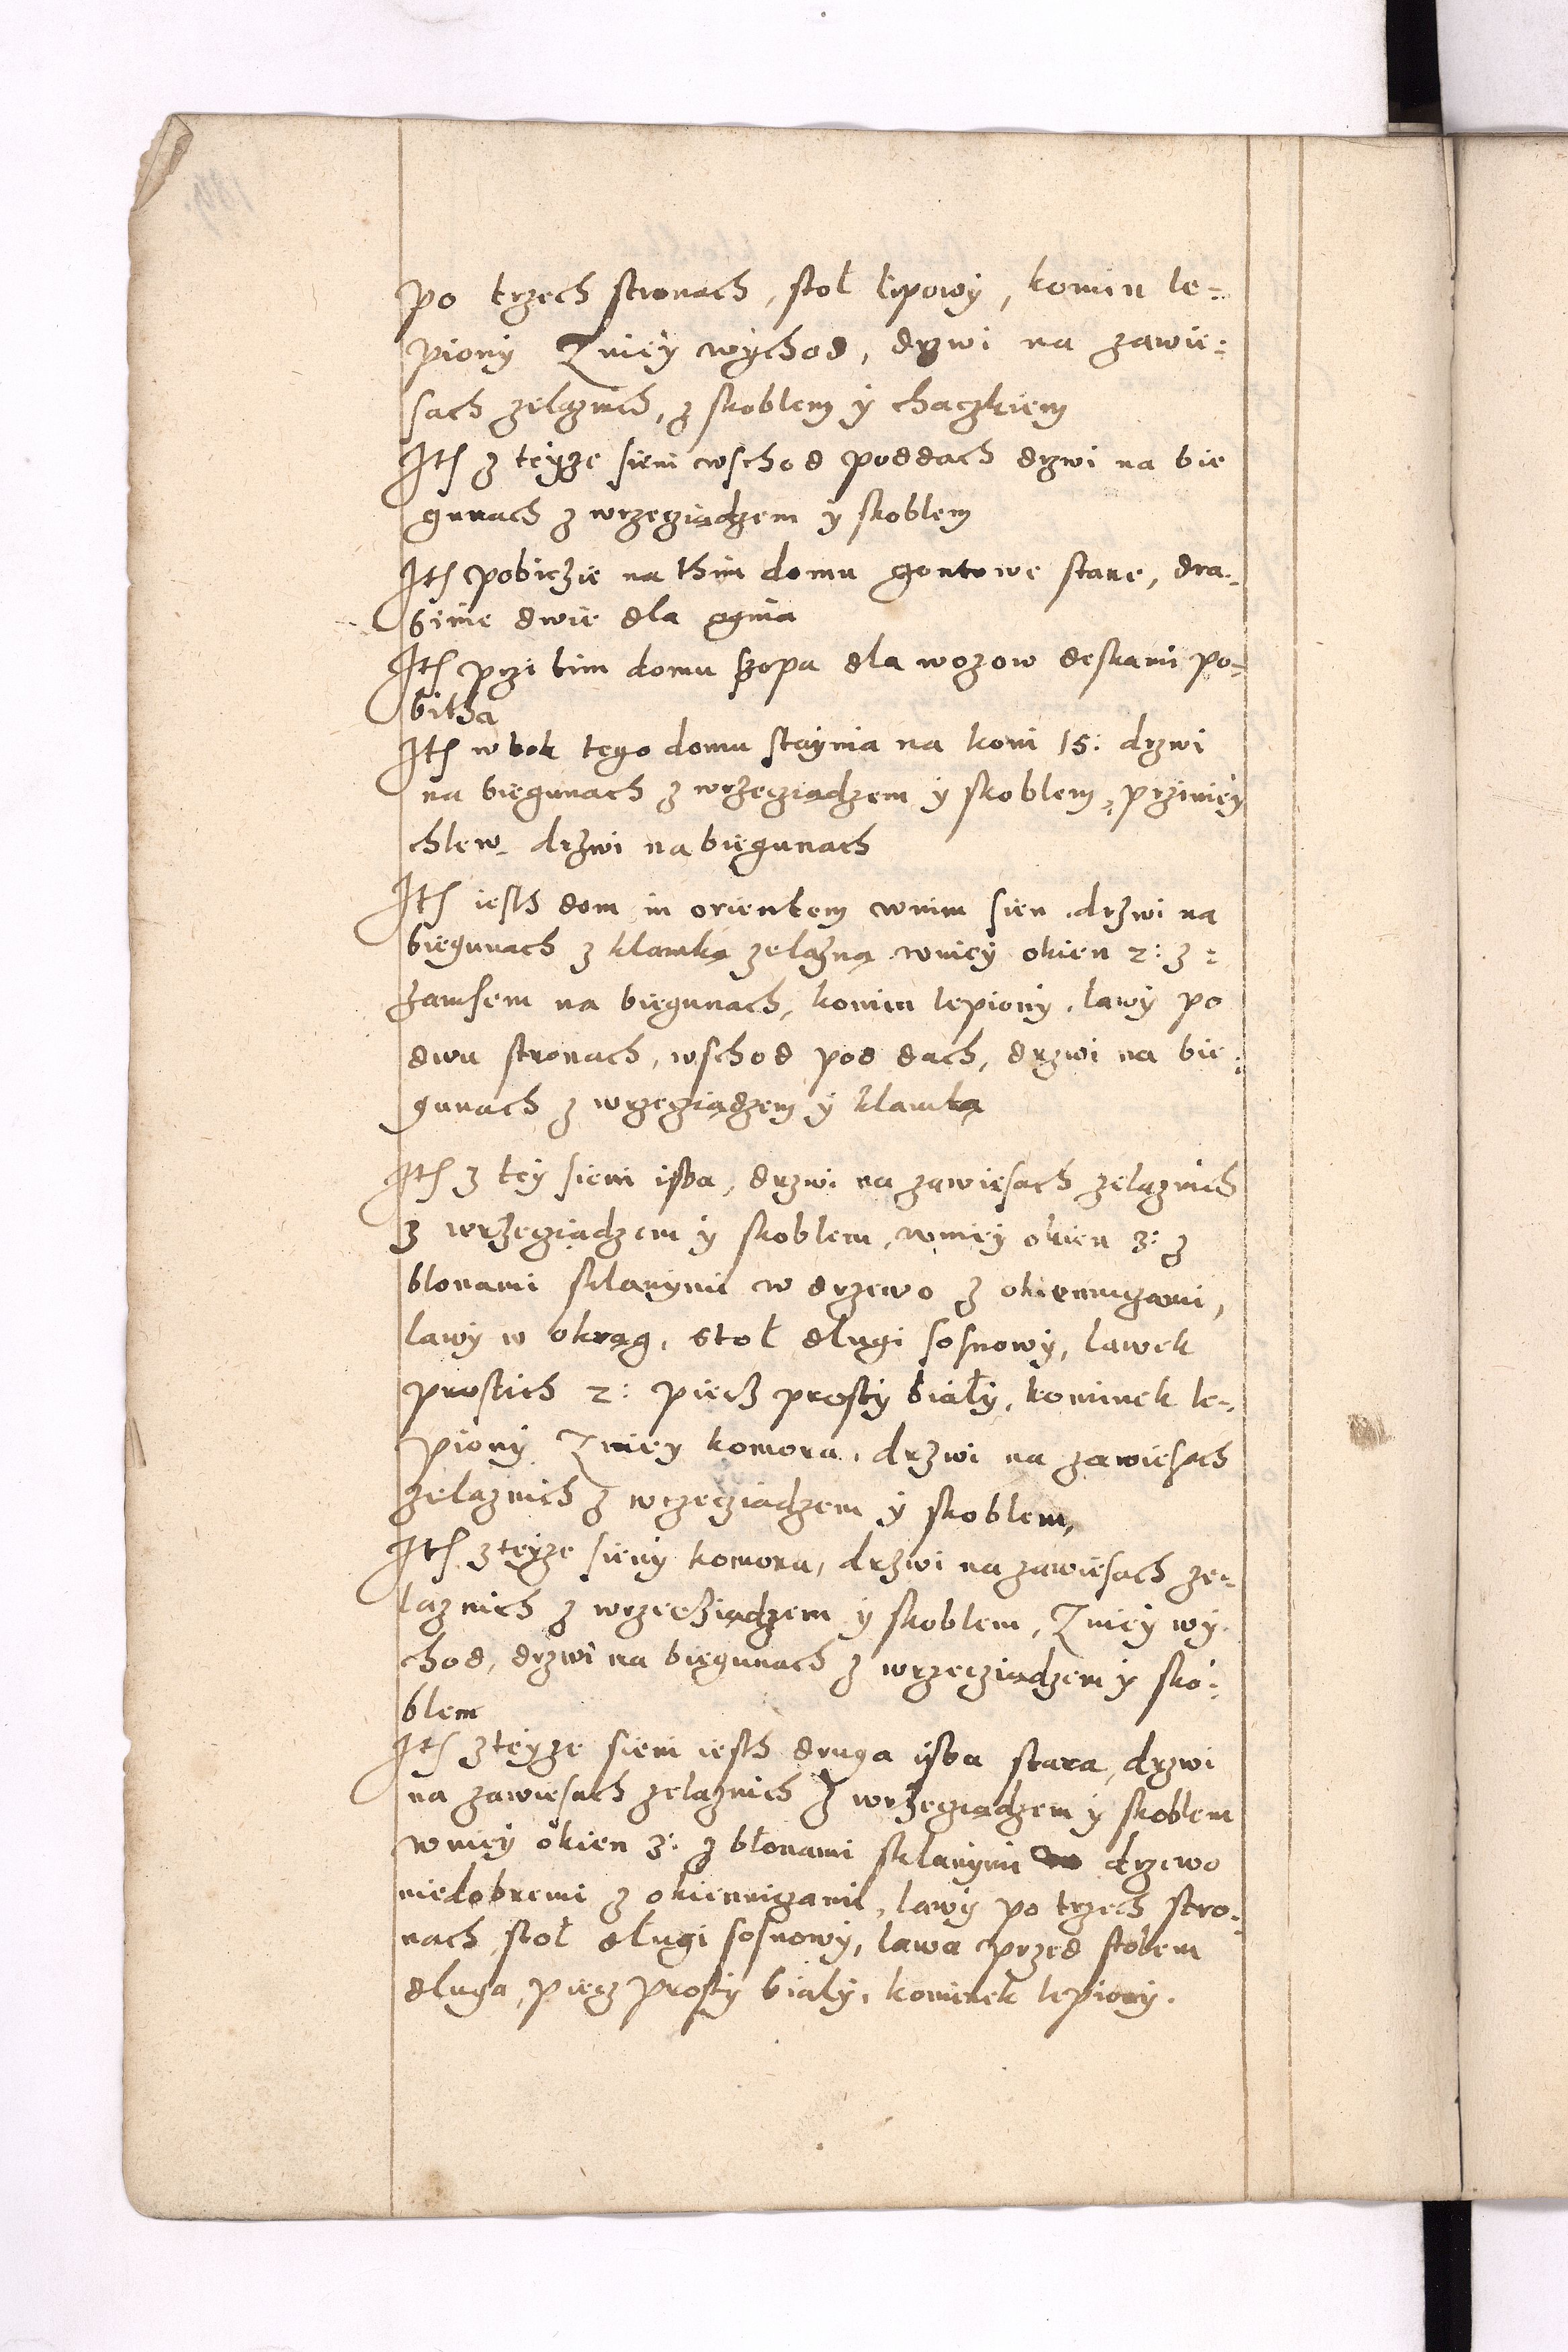 po trzech stronach, stoł lipowy, komin le-
piony Zniey wychod, drzwi na zawie-
sach zelaznich, z skoblem y haczkiem
Ith z teyze sieni wschod poddach drzwi na bie
gunach z wrzeciadzem y skoblem
Ith pobiczie na thim domu gontowe stare, dra-
binie dwie dla ognia
Ith przi tim domu szopa dla wozow deskami po-
bitha
Ith w bok tego domu staynia na koni 15: drzwi
na biegunach z wrzeciadzem y skoblem, przyniey
chlew. drzwi na biegunach
Ith iesth dom in orientem wnim sien. drzwi na
biegunach z klamką zelazną wniey okien 2: z-
zamsem na biegunach, komin lepiony. lawy po
dwu stronach, wschod pod dach, drzwi na bie-
gunach z wrzeciądzem y klamką
Ith z tey sieni izba, drzwi na zawiesach zelaznich
z wrzeciądzem y skoblem, wniey okien 3: z
blonami sklanymi w drzewo z okiennicami,
lawy w okrąg, stoł dlugi sosnowy, lawek
prostich 2: piecz prosty biały, kominek le-
piony Zniey komora, drzwi na zawiesach
zelaznich z wrzeciadzem y skoblem,
Ith zteyze sieny komora, drzwi na zawiesach ze-
laznich z wrzecziądzem y skoblem, Zniey wy-
chod, drzwi na biegunach z wrzeciadzem y sko-
blem
Ith zteyze sieni iesth druga izba stara, drzwi
na zawiesach zelaznich z wrzeciadzem y skoblem
wniey okien 3: z błonami sklanymi w drzewo
niedobremi z okiennicami, lawy po trzech stro-
nach, stoł długi sosnowy, lawa przed stołem
dluga, piecz prosty biały, kominek lepiony.